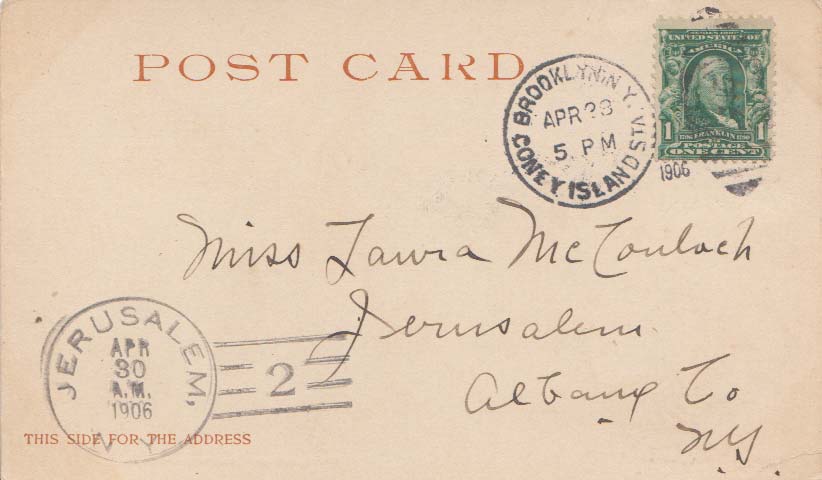 POST CARD
BROOKLYN N.Y.
APR 28
5 PM
CONEY ISLAND STA
1906
SERIES 1902
UNITED STATES OF
AMERICA
1 1
FRANKLIN
POSTAGE
ONE CENT
Miss Laura McCouloch
Jerusalem
Albany Co
N.Y.
JERUSALEM,
APR
30
A.M.
1906
N.Y.
2
THIS SIDE FOR THE ADDRESS